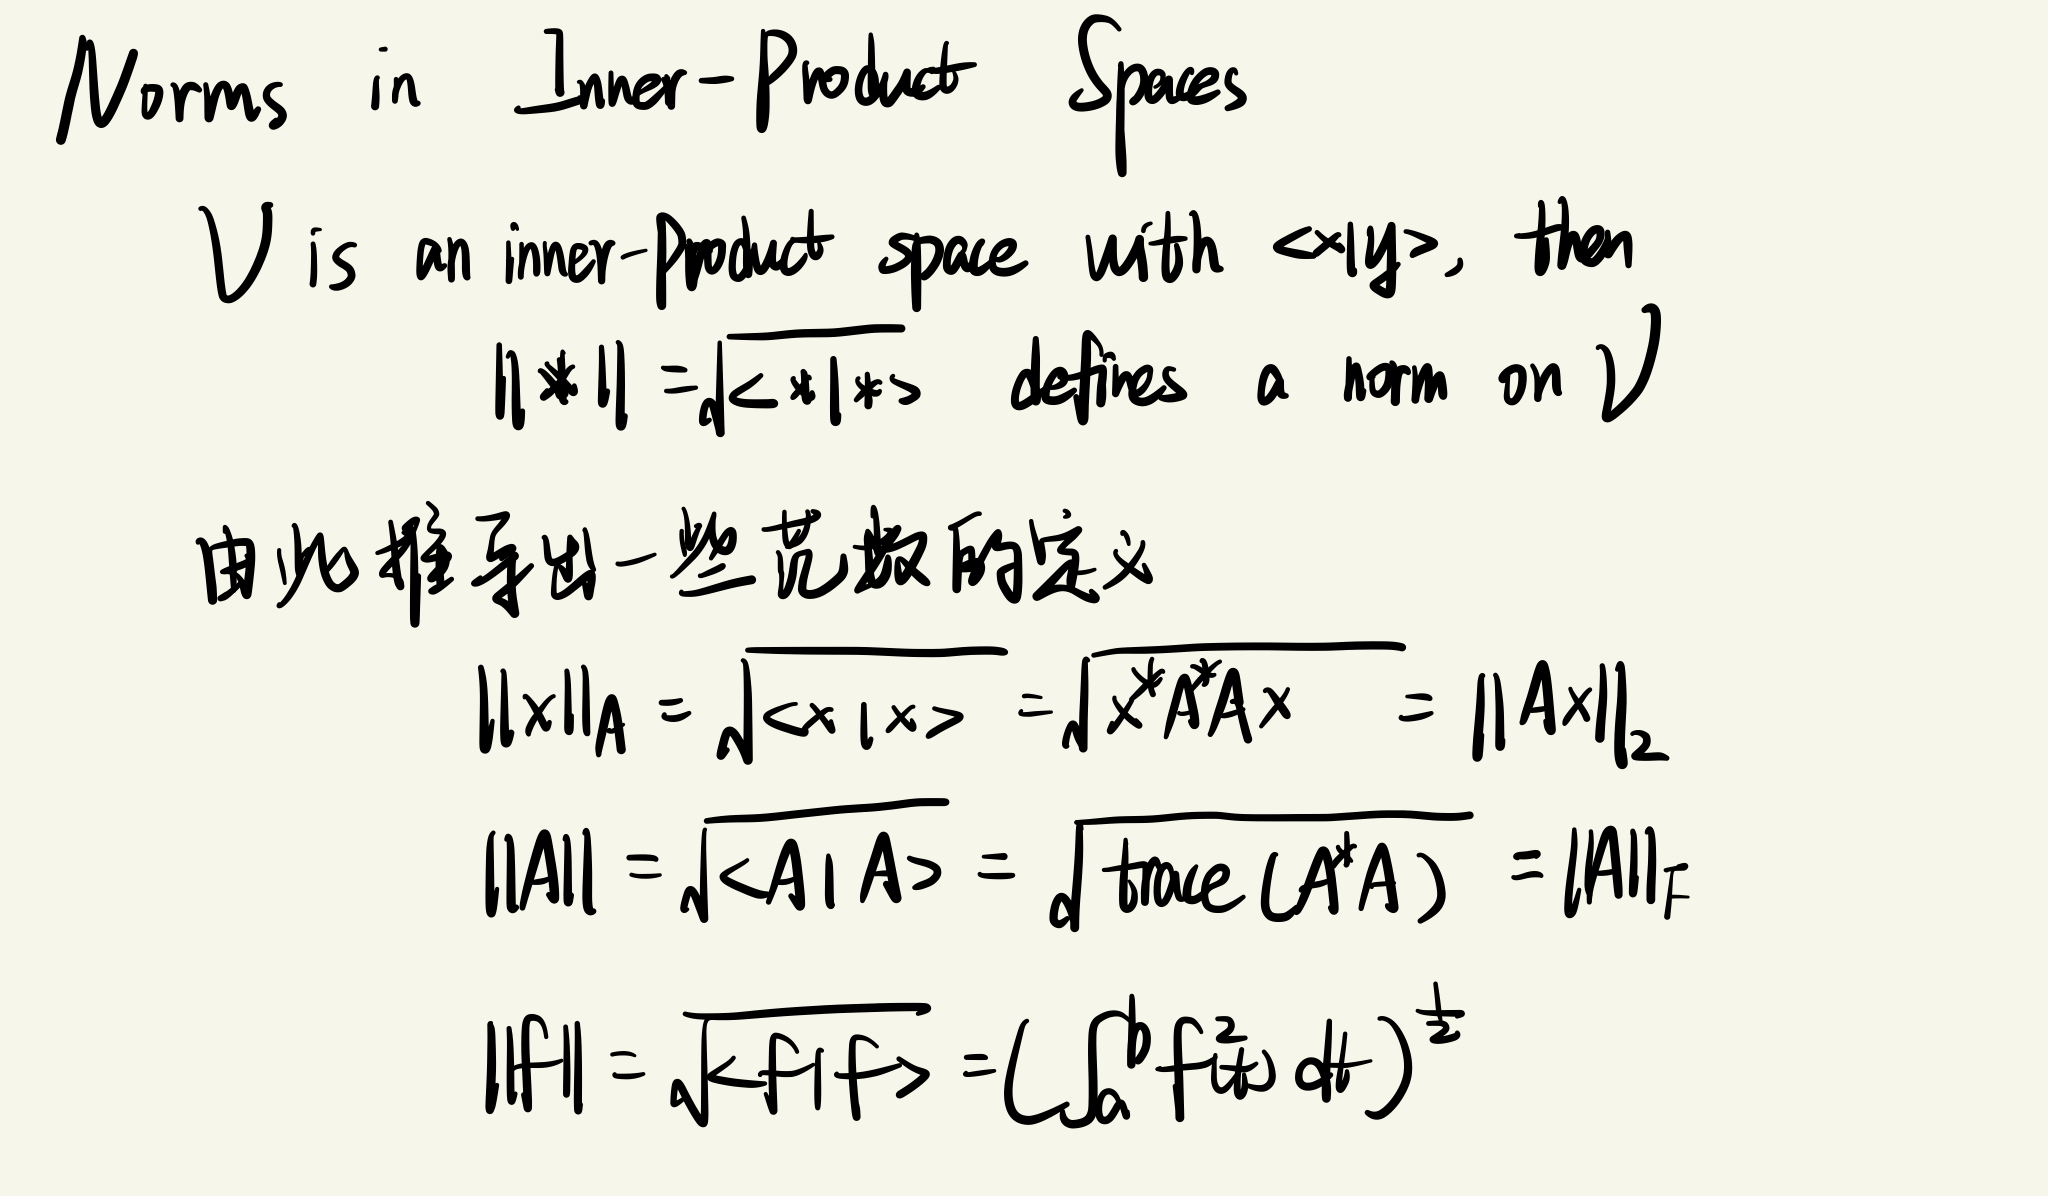 Norms in Inner-Product Spaces
V is an inner-product space with <x|y>, then
||*|| = √<*|*> defines a norm on V
由此推导出一些范数的定义
||x||_A = √<x|x> = √x*A*Ax = ||Ax||₂
||A|| = √<A|A> = √trace(A*A) = ||A||_F
||f|| = √<f|f> = (∫ₐᵇ f²(t) dt)^½